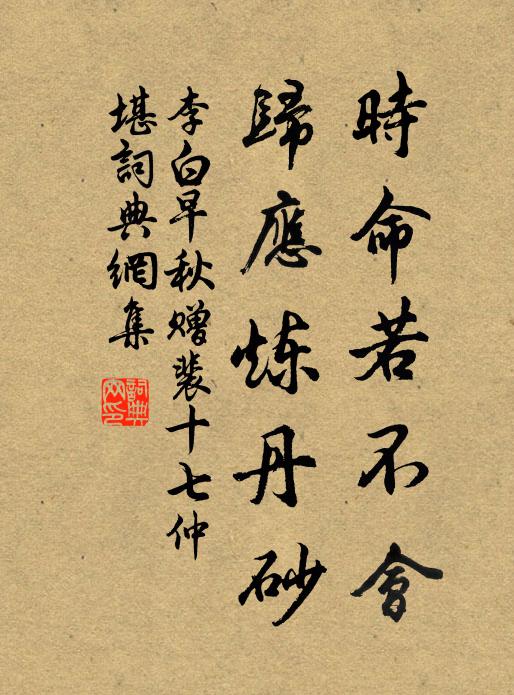 時命若不會
歸應炼丹砂
李白早秋赠裴十七仲
堪詞典網集
詞典網印